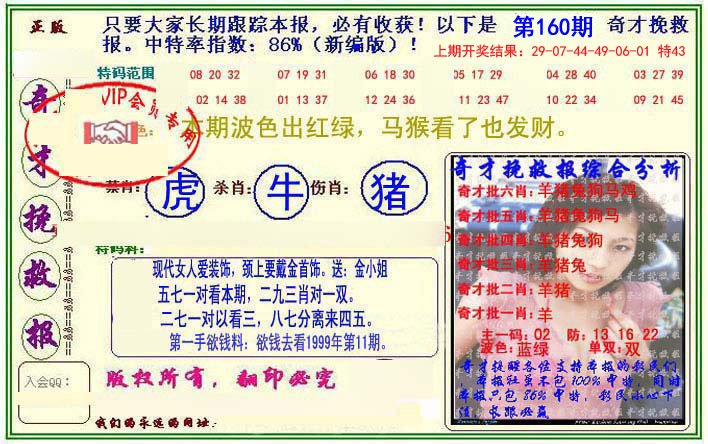 正版
只要大家长期跟踪本报，必有收获！以下是 第160期 奇才挽救
报。中特率指数：86%（新编版）！
上期开奖结果：29-07-44-49-06-01 特43
特码范围
08 20 32 07 19 31 06 18 30 05 17 29 04 28 40 03 27 39
02 14 38 01 13 37 12 24 36 11 23 47 10 22 34 09 21 45
VIP会员专用
色：本期波色出红绿，马猴看了也发财。
奇才挽救报
禁肖：虎 杀肖：牛 伤肖：猪
特码料：
现代女人爱装饰，颈上要戴金首饰。送：金小姐
五七一对看本期，二九三肖对一双。
二七一对以看三，八七分离来四五。
第一手欲钱料：欲钱去看1999年第11期。
奇才挽救报综合分析
奇才批六肖：羊猪兔狗马鸡
奇才批五肖：羊猪兔狗马
奇才批四肖：羊猪兔狗
奇才批三肖：羊猪兔
奇才批二肖：羊猪
奇才批一肖：羊
主一码：02 防：13 16 22
波色：蓝绿 单双：双
奇才挽救各位支持本报的彩民们
，本报红虽不包100%中特，同时
本报只包86%中特，彩民小心下
注，长跟必赢
入会QQ：
版权所有，翻印必究
我们的永远的网址：